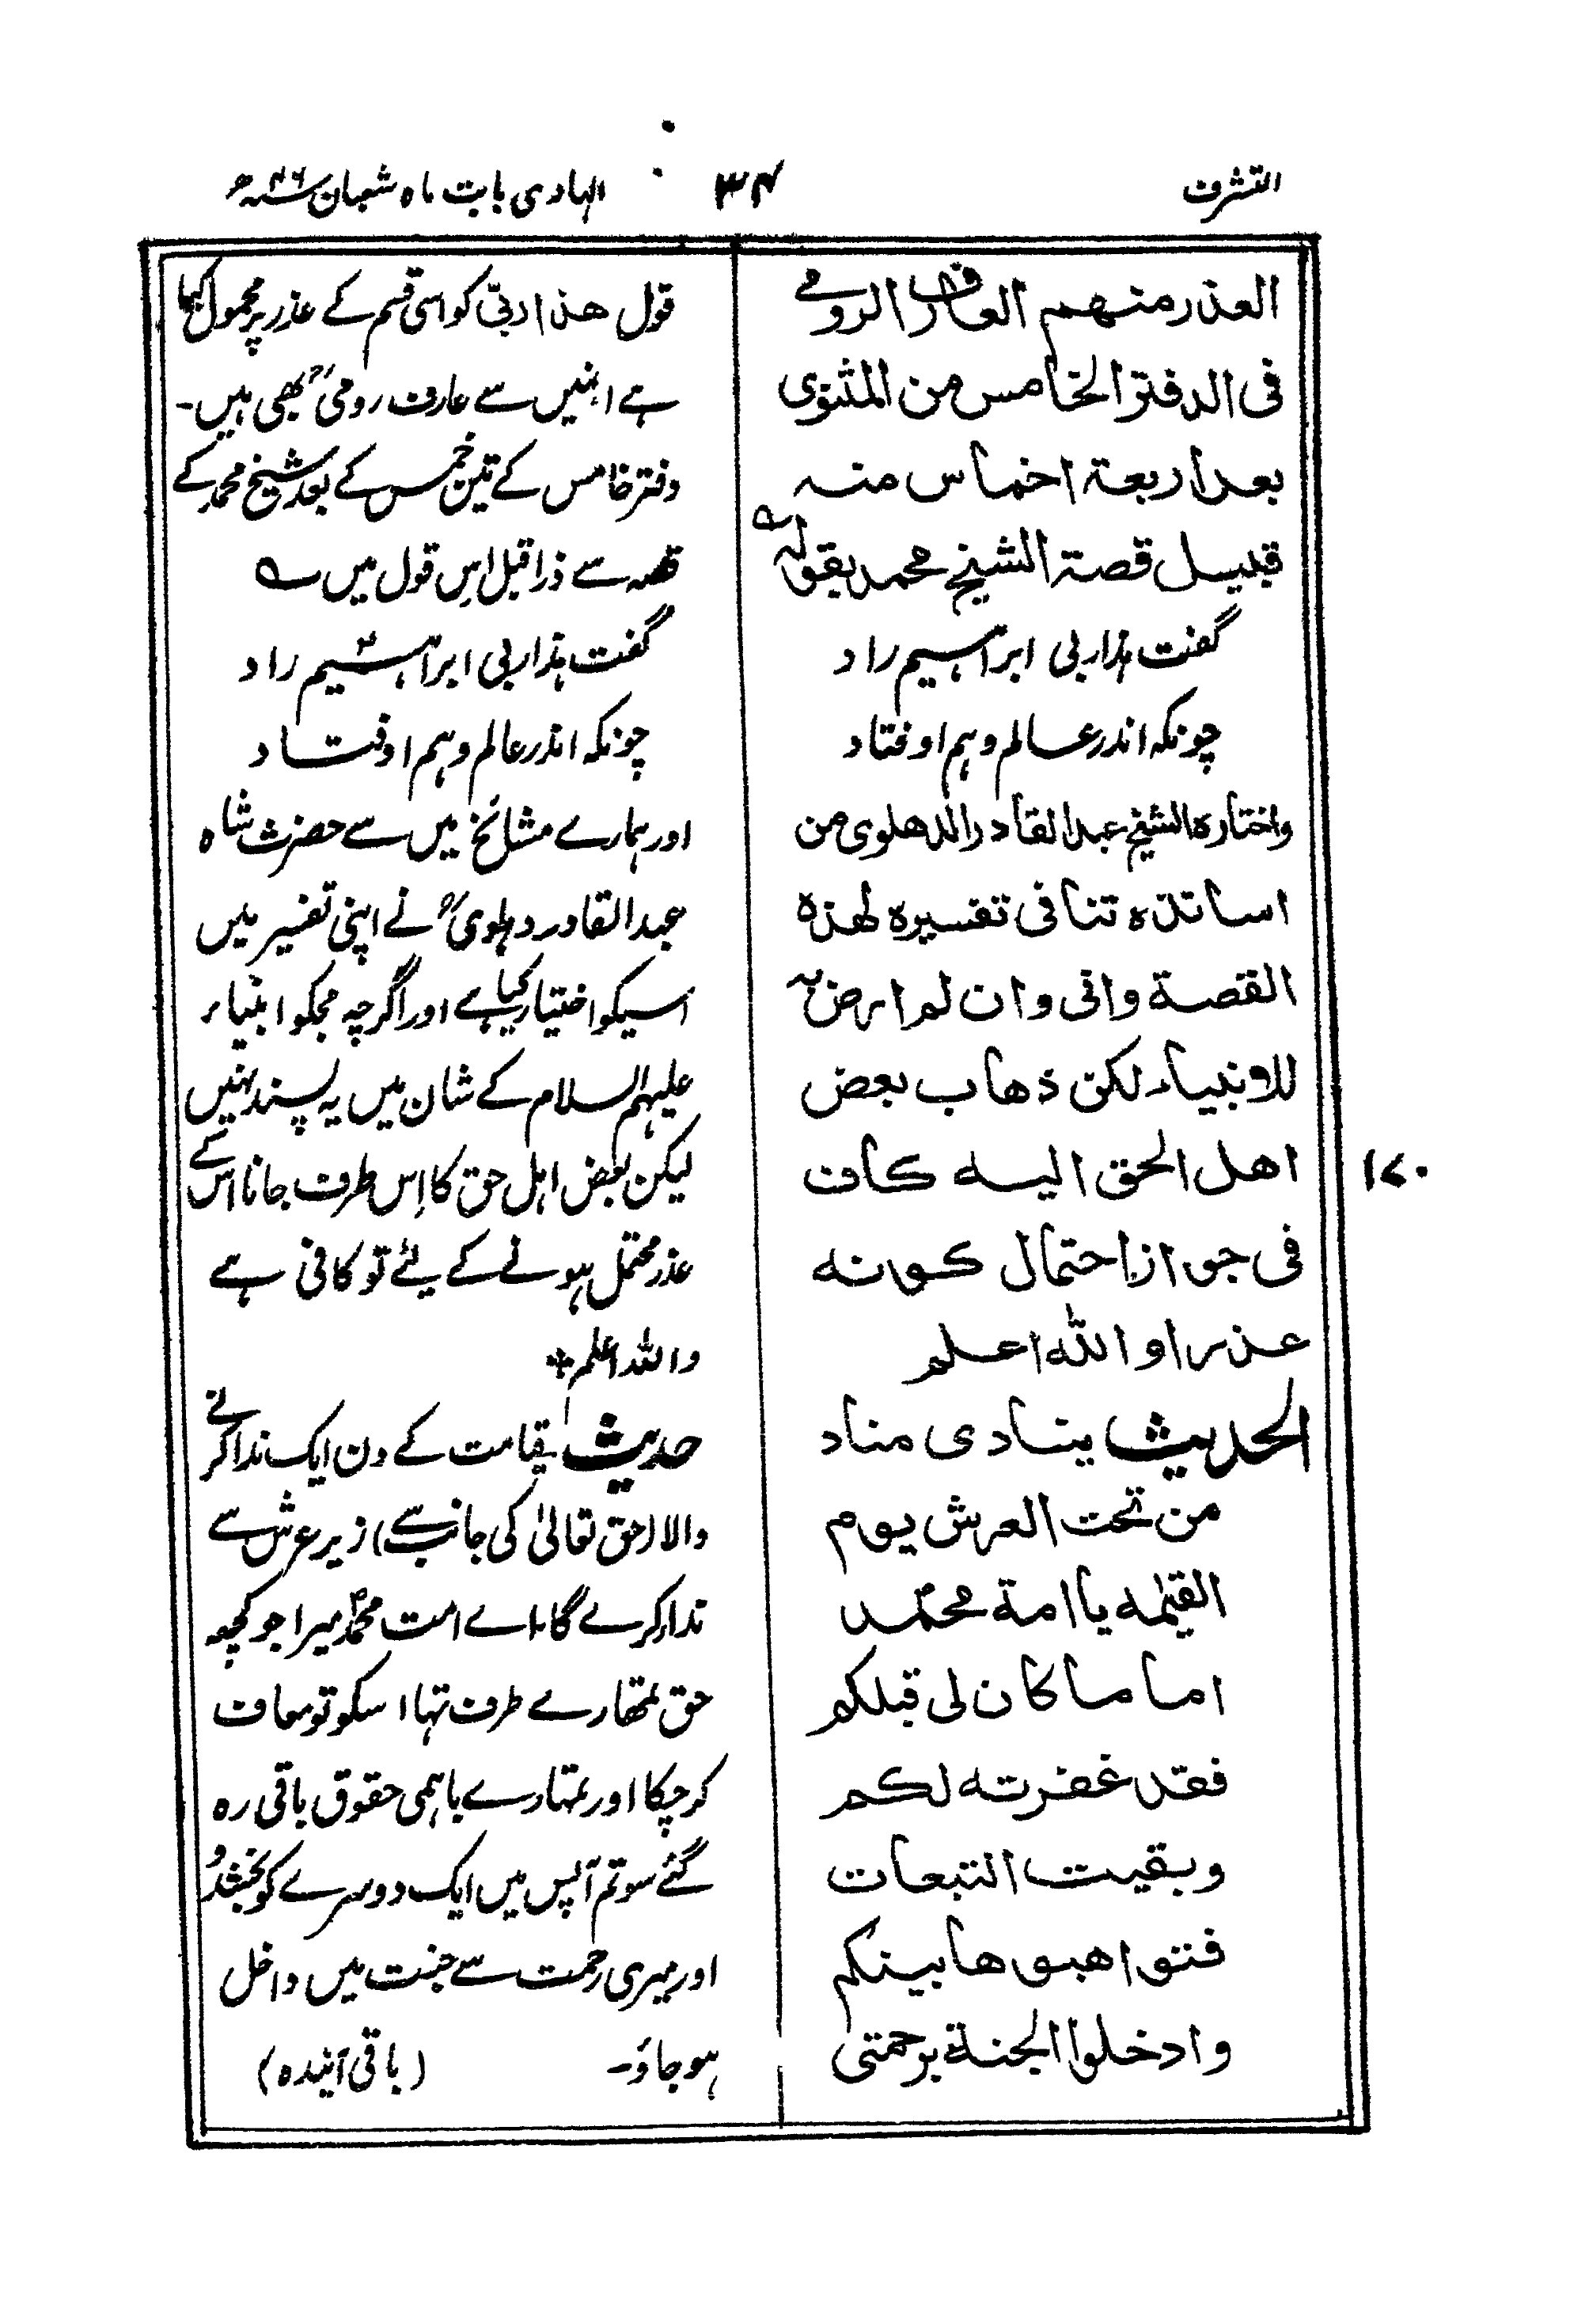 التشرف
۳۴
الہادی بابت ماہ شعبان ۴۶ھ
العذر منهم العارف الرومی
فی الدفتر الخامس من المثنوی
بعد اربعة اخماس منه
قبیل قصة الشیخ محمد بقوله
گفت ہذا ربی ابراہیم راد
چونکہ اندر عالم وہم اوفتاد
واختاره الشیخ عبد القادر الدهلوی من
اساتذه تنا فی تفسیره لهذه
القصة وانی وان لم ارض به
للانبیاء لکن ذهاب بعض
اهل الحق الیه کاف
فی جواز احتمال کونه
عذرا والله اعلم
الحدیث ینادی مناد
من تحت العرش یوم
القیمه یا امة محمد
اما ما کان لی قبلکم
فقد غفرته لکم
وبقیت التبعات
فتواهبوها بینکم
وادخلوا الجنة برحمتی
قول هذا ربی کو اسی قسم کے عذر پر محمول کیا
ہے انہیں سے عارف رومیؒ بھی ہیں۔
دفتر خامس کے تین خمس کے بعد شیخ محمد کے
قصہ سے ذرا قبل اس قول میں ؎
گفت ہذا ربی ابراہیم راد
چونکہ اندر عالم وہم اوفتاد
اور ہمارے مشائخ میں سے حضرت شاہ
عبد القادر دہلویؒ نے اپنی تفسیر میں
اسیکو اختیار کیا ہے اور اگرچہ مجکو انبیاء
علیہم السلام کے شان میں یہ پسند نہیں
لیکن بعض اہل حق کا اِس طرف جانا اس کے
عذر محتمل ہونے کے لئے تو کافی ہے
واللہ اعلم
حدیث قیامت کے دن ایک ندا کرنے
والا (حق تعالیٰ کی جانب سے) زیر عرش سے
ندا کرے گا، اے امت محمدؐ میرا جو کچھ
حق تمھارے طرف تھا اسکو تو معاف
کر چکا اور تمہارے باہمی حقوق باقی رہ
گئے سو تم آپس میں ایک دوسرے کو بخشدو
اور میری رحمت سے جنت میں داخل
ہو جاؤ۔ (باقی آیندہ)
۱۷۰